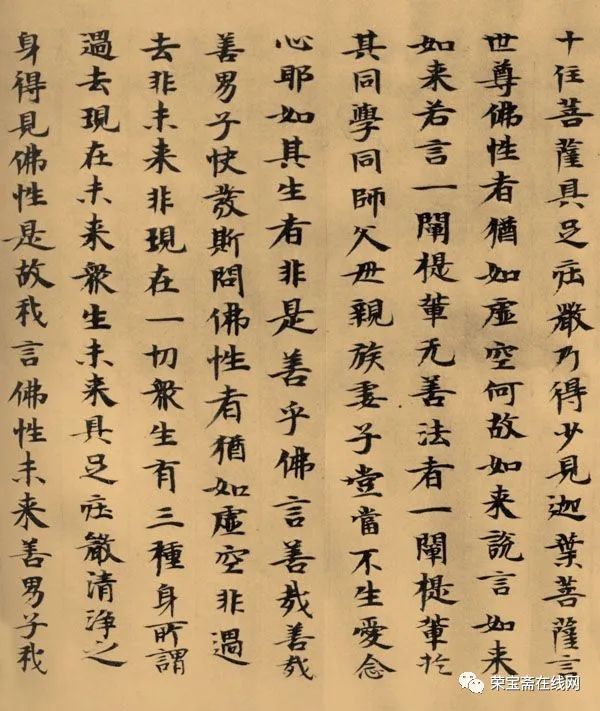 十住菩薩具足庄嚴乃得少見迦葉菩薩言
世尊佛性者猶如虛空何故如来說言如来
如来若言一闡提輩无善法者一闡提輩於
其同學同師父母親族妻子豈當不生愛念
心耶如其生者非是善乎佛言善哉善哉
善男子快發斯問佛性者猶如虛空非過
去非未来非現在一切衆生有三種身所謂
過去現在未来衆生未来具足庄嚴清淨之
身得見佛性是故我言佛性未来善男子我
荣宝斋在线网